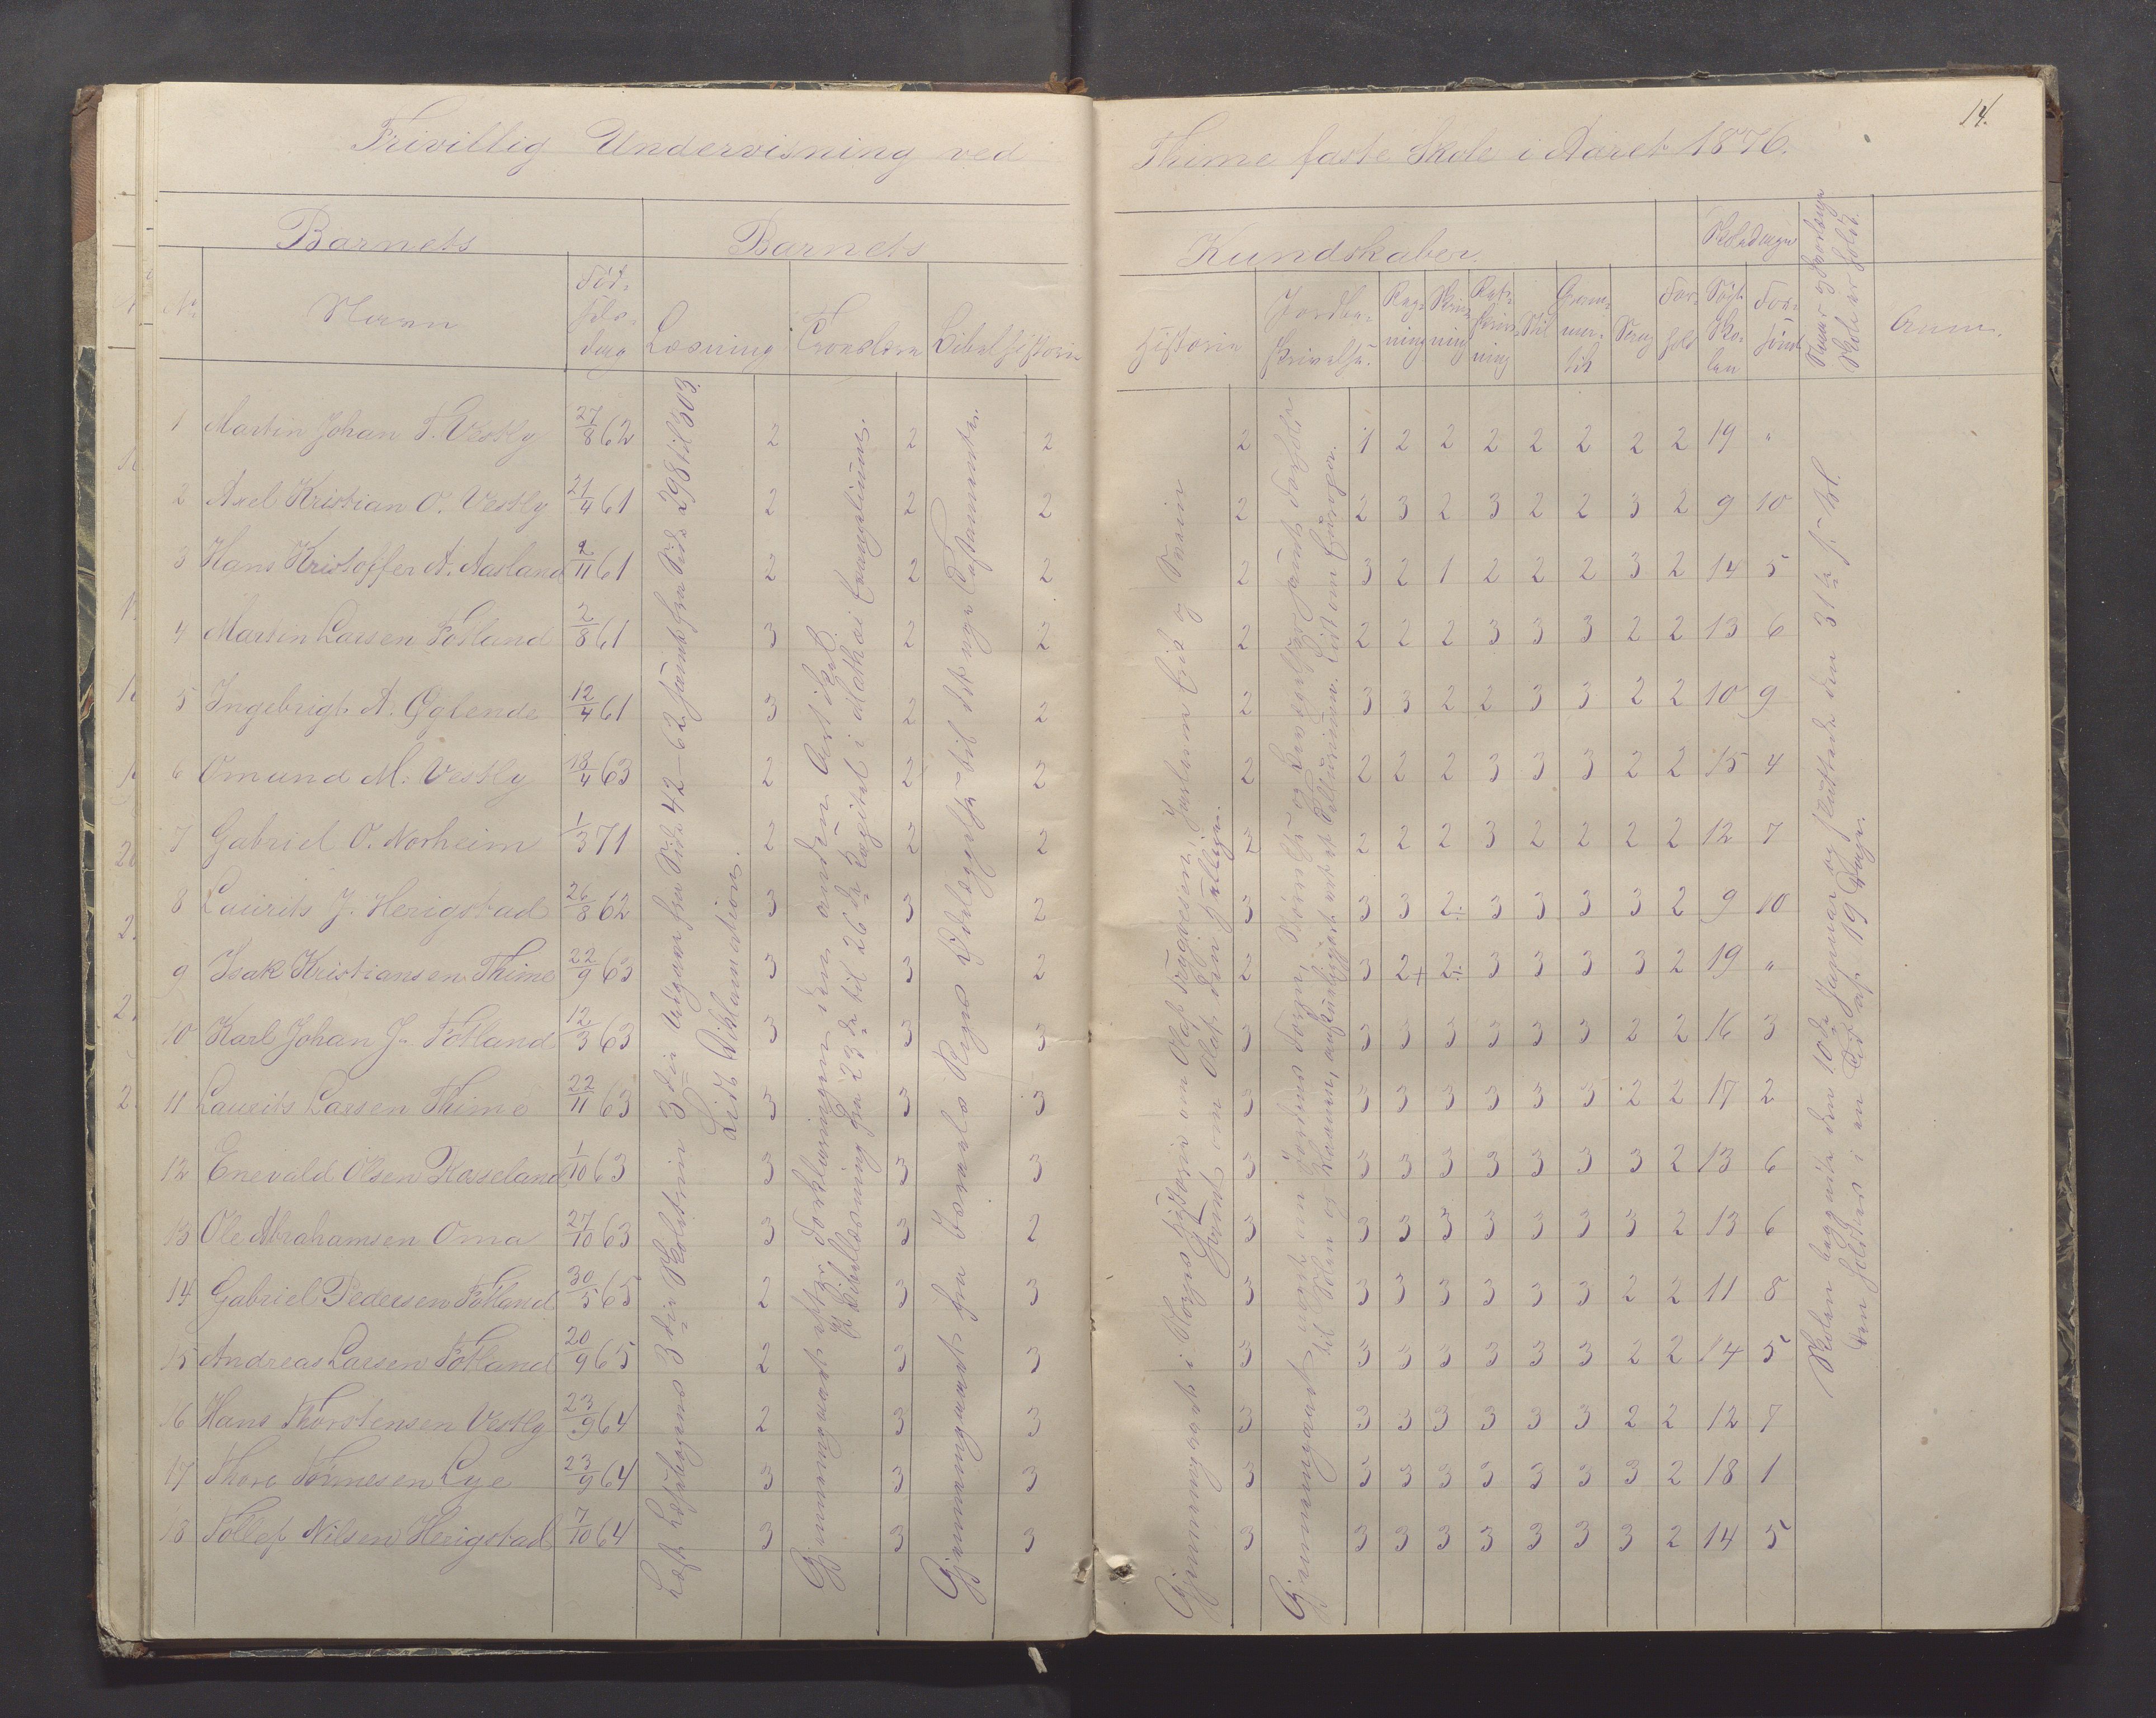 Frivillig Undervisning ved Thime faste Skole i Aaret 1876.
14.
Barnets
Barnets Kundskaber.
Skoledage
No
Navn
Fød-
sels-
dag
Læsning
Troeslære
Bibelhistorie
Historie
Jordbe-
skrivelse
Reg-
ning
Skriv-
ning
Ret-
skriv-
ning
Stil
Gram-
mer-
tik
Sang
For-
hold
Søgt
Sko-
len
For-
sømt
Naar og hvorlænge
Skolen er holdt.
Anm.
1 Martin Johan T. Vestly 27/8 62 2 2 2 2 1 2 2 2 2 2 2 2 19 "
2 Axel Kristian O. Vestly 21/4 61 2 2 2 2 2 3 2 3 2 2 3 2 9 10
3 Hans Kristoffer A. Aasland 2/11 61 2 2 2 2 3 2 1 2 2 2 3 2 14 5
4 Martin Larsen Fotland 2/8 61 3 2 2 2 2 2 2 3 3 3 2 2 13 6
5 Ingebrigt A. Gglende 12/4 61 3 2 2 2 3 3 2 2 3 3 2 2 10 9
6 Omund M. Vestly 18/4 63 2 2 2 2 2 2 2 3 3 3 2 2 15 4
7 Gabriel O. Norheim 1/3 71 2 2 2 2 2 2 2 3 2 2 2 2 12 7
8 Laurits J. Herigstad 26/8 62 3 3 2 3 3 3 2÷ 3 3 3 3 2 9 10
9 Isak Kristiansen Thime 22/9 63 3 3 2 2 3 2+ 2÷ 3 3 3 3 2 19 "
10 Karl Johan J. Fotland 12/3 63 3 3 3 3 3 3 3 3 3 3 2 2 16 3
11 Laurits Larsen Thime 22/11 63 3 3 3 3 3 3 3 3 3 3 2 2 17 2
12 Enevald Olsen Haseland 1/10 63 3 3 3 3 3 3 3 3 3 3 3 2 13 6
13 Ole Abrahamsen Oma 27/10 63 3 3 2 3 3 3 3 3 3 3 3 2 13 6
14 Gabriel Pedersen Fotland 30/5 65 2 3 3 3 3 3 3 3 3 3 2 2 11 8
15 Andreas Larsen Fotland 20/9 65 2 3 3 3 3 3 3 3 3 3 2 2 14 5
16 Hans Thorstensen Vestly 23/9 64 2 3 3 3 3 3 3 3 3 3 2 2 12 7
17 Thore Tormesen Lye 23/9 64 3 3 3 3 3 3 3 3 3 3 3 2 18 1
18 Tollef Nilsen Herigstad 7/10 64 3 3 3 3 3 3 3 3 3 3 3 2 14 5
Læst Læsebogens 3die Skoletrin 3die Udgave fra Side 42-62 samt fra Side 298 til 303.
Lidt Diklamation.
Gjennemgaaet efter Forklaringen den anden Artikel
Bibellæsning fra 23de til 26de Kapitel i Mathæi Evangelium.
Gjennemgaaet fra Israels Riges Ødelæggelse til det nye Testamente.
Gjennemgaaet i Norges Historie om Olaf Trygvesøn, Jarlerne Eirik og Svein
samt om Olaf den hellige.
Gjennemgaaet om Jordens Form, Størrelse og Bevægelse samt Forhold
til Solen og Maanen, anskueliggjort ved et Tellurium. Lidt om Europa.
Skolen begyndte den 10de Januar og sluttede den 31te s. M.
Den holdtes i en Tid af 19 Dage.